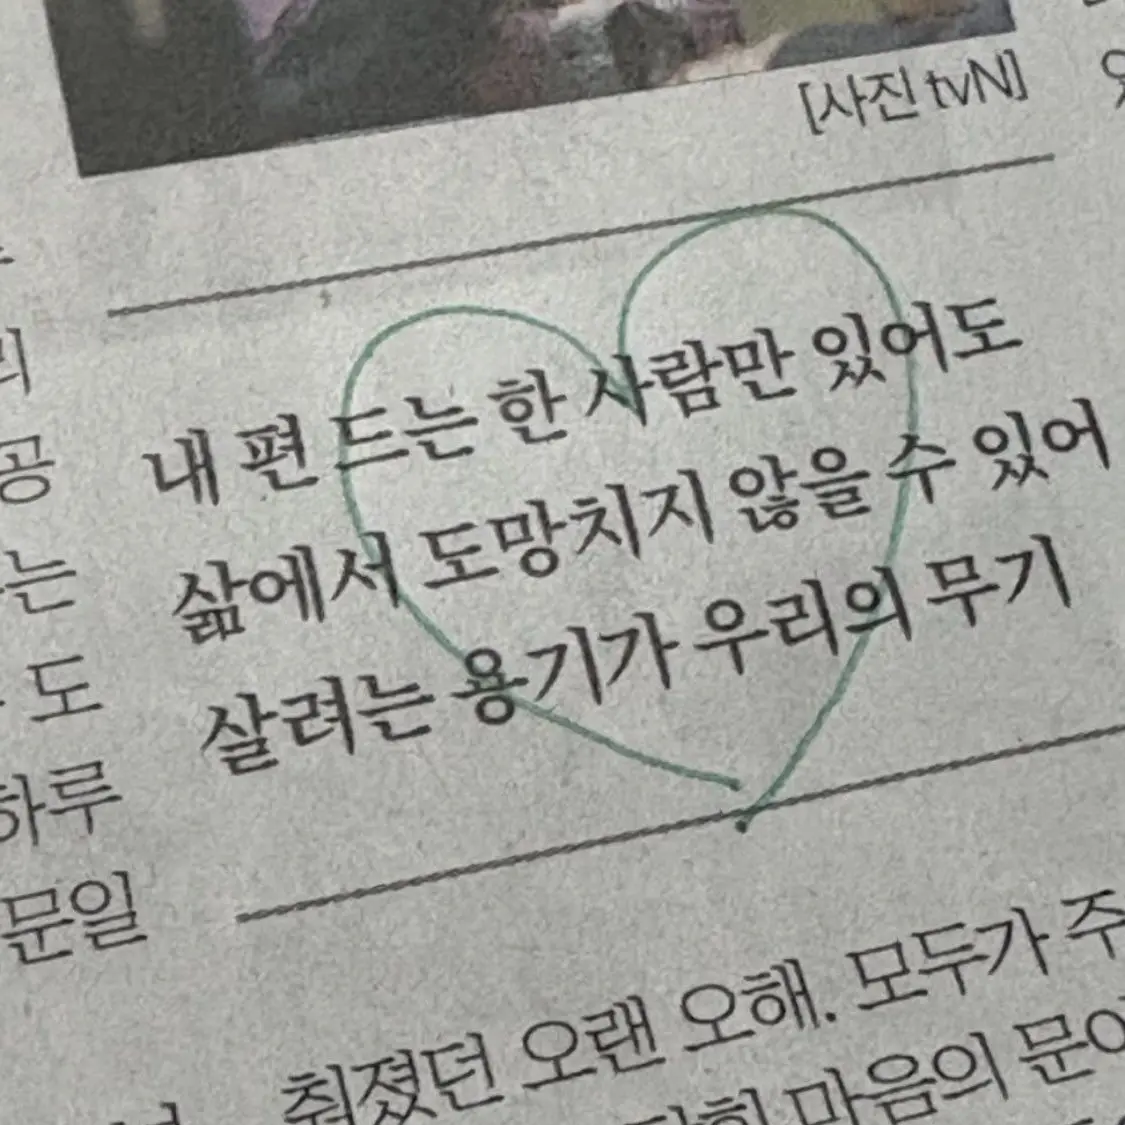 [사진 tvN]
내 편 드는 한 사람만 있어도
삶에서 도망치지 않을 수 있어
살려는 용기가 우리의 무기
공
는
도
하루
문일
취졌던 오랜 오해. 모두가 주
마음의 문이